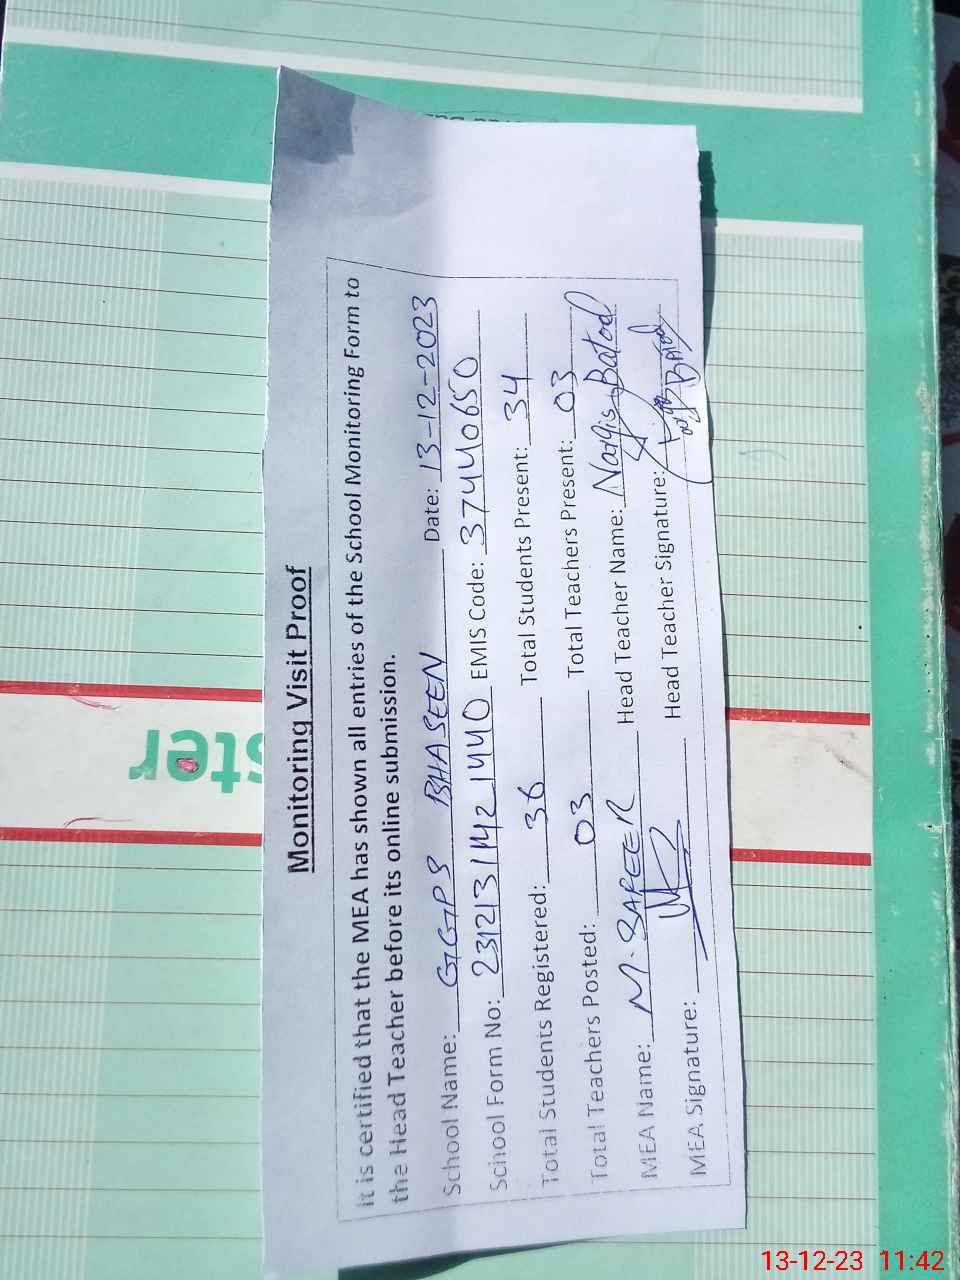 Monitoring Visit Proof
It is certified that the MEA has shown all entries of the School Monitoring Form to
the Head Teacher before its online submission.
School Name: GGPS BHASEEN Date: 13-12-2023
School Form No: 2312131142 1440 EMIS Code: 37440650
Total Students Registered: 36 Total Students Present: 34
Total Teachers Posted: 03 Total Teachers Present: 03
MEA Name: M. SAFEER Head Teacher Name: Nargis Batool
MEA Signature: Head Teacher Signature:
ster
13-12-23 11:42